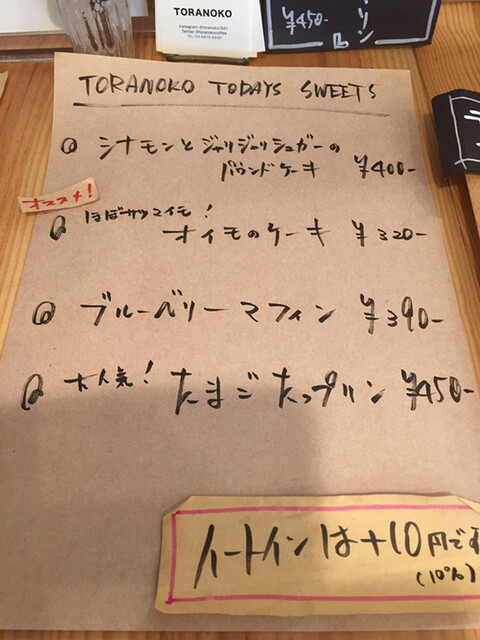 TORANOKO
¥450-
リン
TORANOKO TODAYS SWEETS
シナモンとジャリジャリシュガーの
パウンドケーキ ¥400-
オススメ!
ほぼサツマイモ!
オイモのケーキ ¥320-
ブルーベリーマフィン ¥390-
大人気! たまごたっプリン ¥450-
イートインは+10円です
(10%)